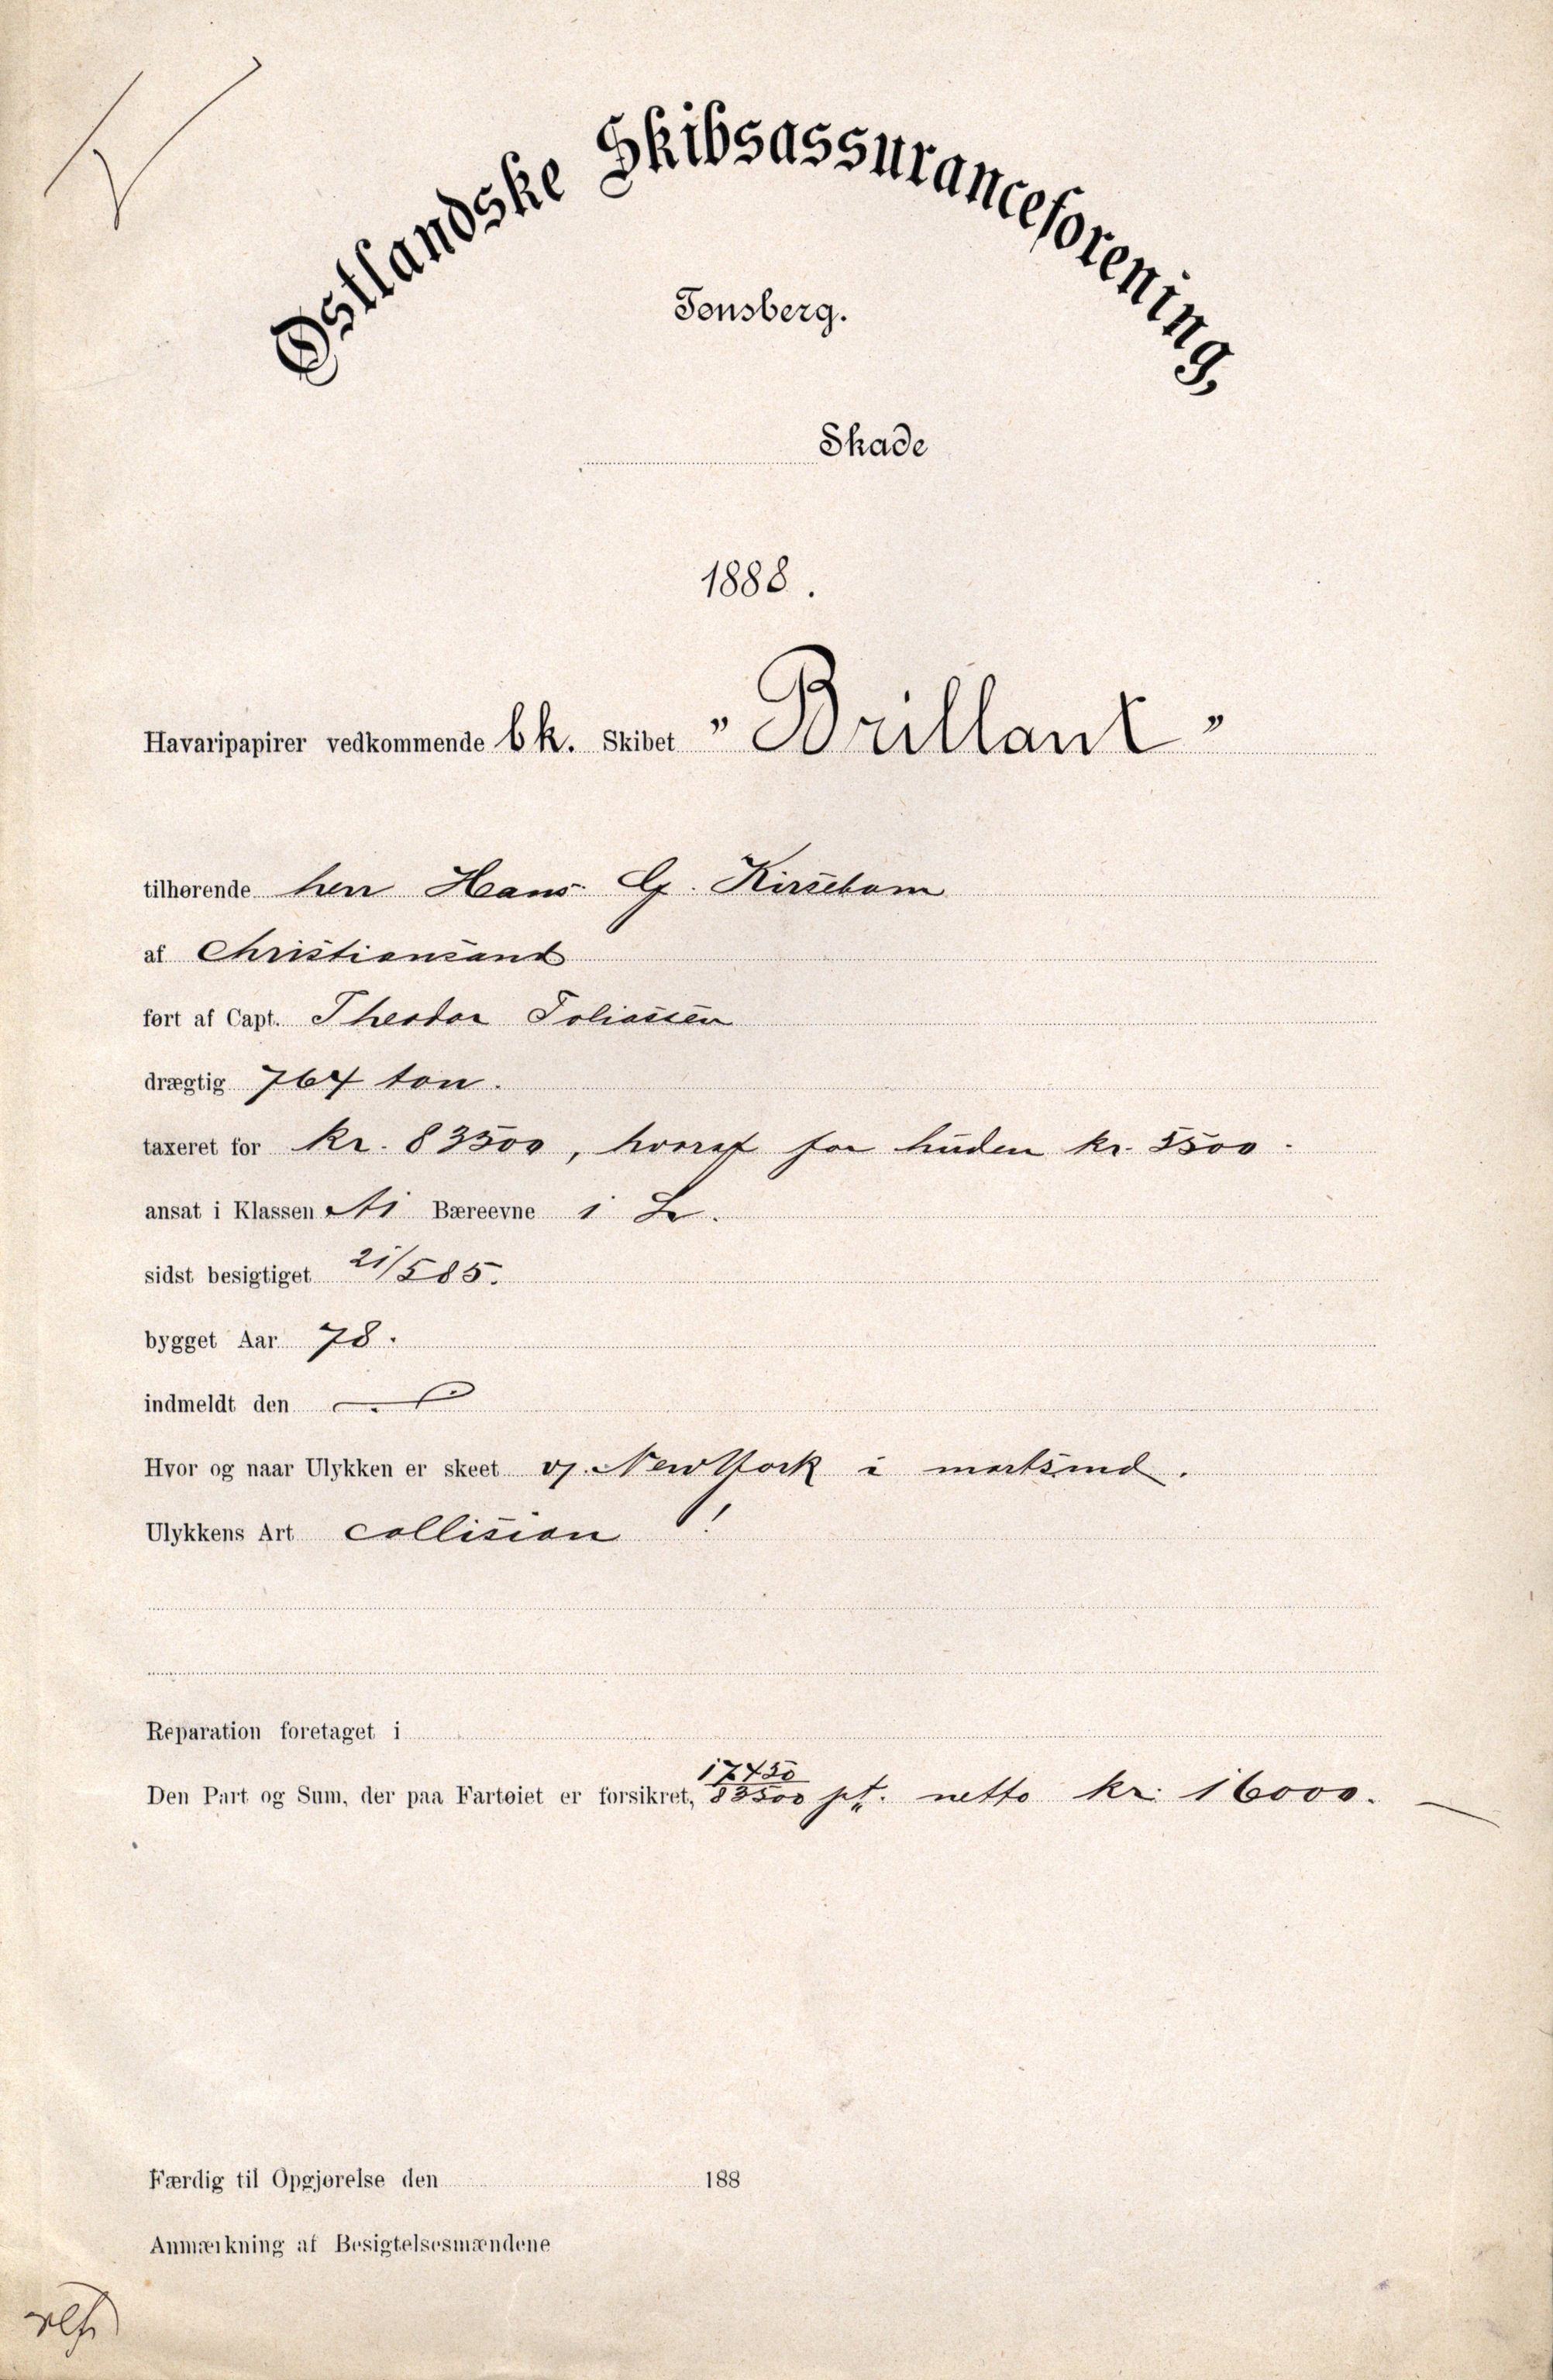 Østlandske Skibsassuranceforening,
Tønsberg.
Skade
1888.
Havaripapirer vedkommende bk. Skibet "Brillant"
tilhørende herr Hans G. Kirsebom
af Christiansand
ført af Capt. Theodor Toliassen
drægtig 764 ton.
taxeret for kr. 83500, hvoraf for huden kr. 5500.
ansat i Klassen A1 Bæreevne 1 L.
sidst besigtiget 21/5 85.
bygget Aar 78.
indmeldt den
Hvor og naar Ulykken er skeet v. New York i martsmd.
Ulykkens Art collision!
Reparation foretaget i
Den Part og Sum, der paa Fartøiet er forsikret, 17450/83500 pt. netto kr. 16000.
Færdig til Opgjørelse den 188
Anmærkning af Besigtelsesmændene